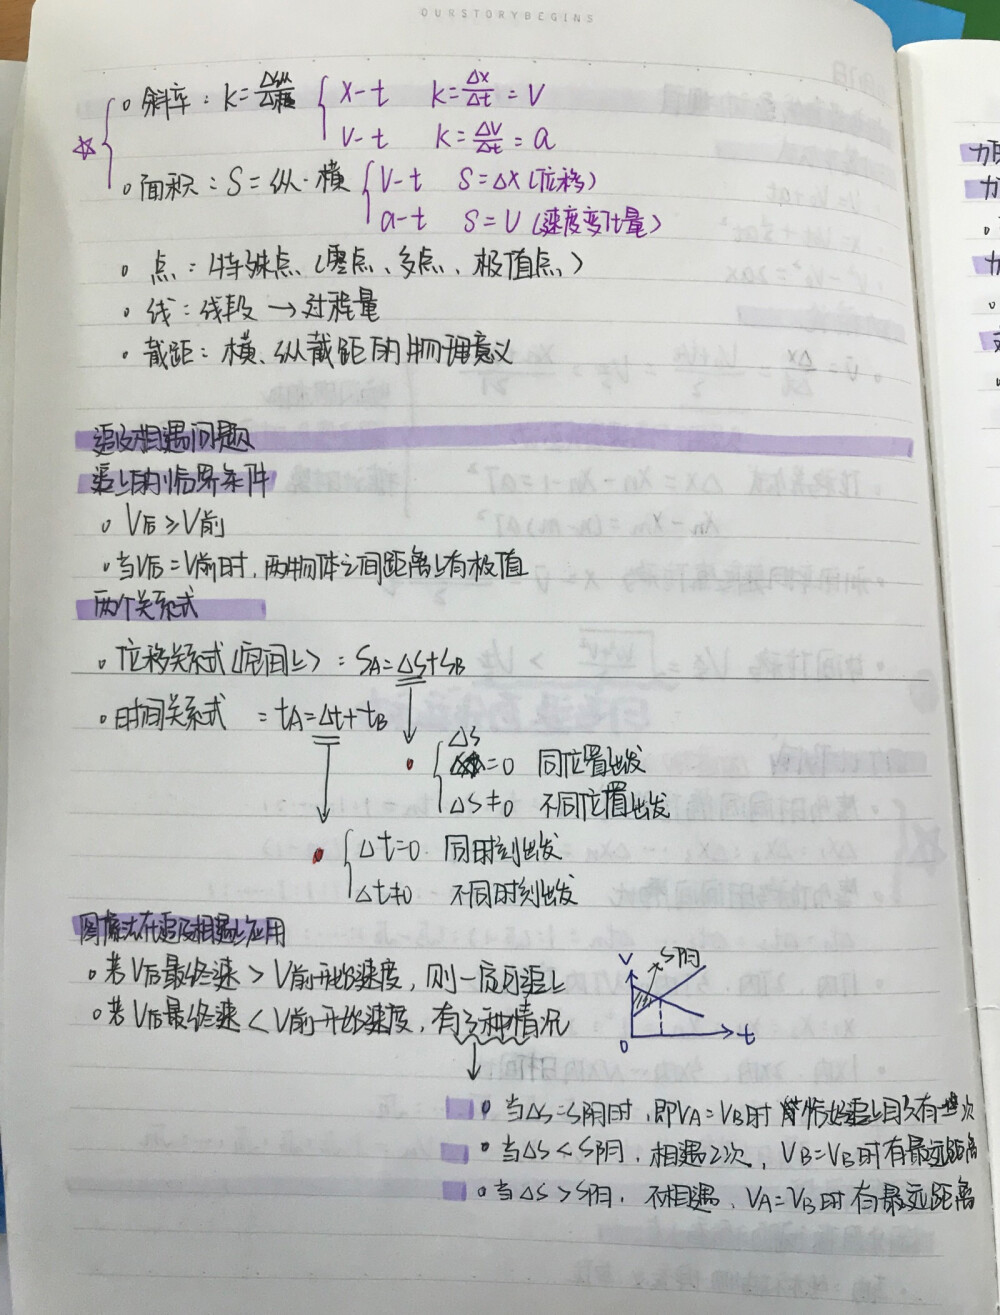 OURSTORYBEGINS
☆ { 。斜率：K=Δ纵/Δ横 { x-t K=Δx/Δt=V
V-t K=ΔV/Δt=a
。面积：S=纵·横 { V-t S=Δx(位移)
a-t S=V(速度变化量)
。点：特殊点(零点、多点、极值点)
。线：线段→过程量
。截距：横、纵截距的物理意义
追及相遇问题
追上的临界条件
。V后≥V前
。当V后=V前时，两物体之间距离上有极值
两个关系式
。位移关系式(空间上)：SA=ΔS+SB
。时间关系式 =tA=Δt+tB
{ ΔS=0 同位置出发
ΔS≠0 不同位置出发
{ Δt=0. 同时刻出发
Δt≠0 不同时刻出发
图像法在追及相遇上应用
。若V后最终速>V前开始速度，则一定可追上
。若V后最终速<V前开始速度，有3种情况
V S阴
0 t
。当ΔS=S阴时，即VA=VB时 恰好追上且只有一次
。当ΔS<S阴，相遇2次，VB=VB时有最远距离
。当ΔS>S阴，不相遇，VA=VB时有最远距离